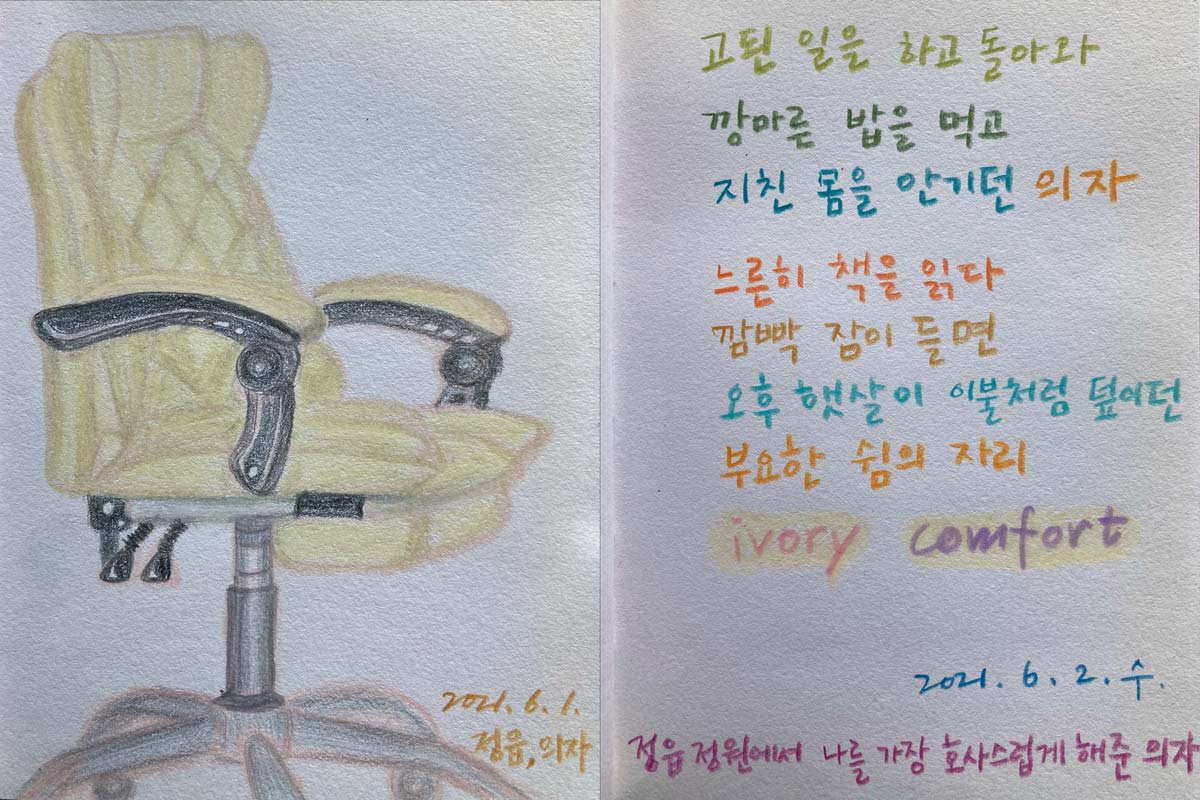 2021. 6. 1.
정읍, 의자
고된 일을 하고 돌아와
깡마른 밥을 먹고
지친 몸을 안기던 의자
느른히 책을 읽다
깜빡 잠이 들면
오후 햇살이 이불처럼 덮이던
부요한 쉼의 자리
ivory comfort
2021. 6. 2. 수.
정읍 정원에서 나를 가장 호사스럽게 해준 의자